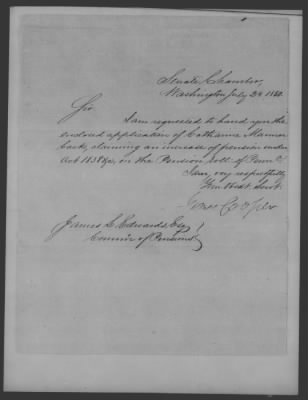 Senate Chamber,
Washington July 24 1850.
Sir
I am requested to hand you the
enclosed application of Catharine
back, claiming an increase of pension under
Act 1838 &c, on the Pension roll of Penna
I am, very respectfully
Your Obdt. Servt.
James Cooper
James L. Edwards, Esq
Commr of Pensions